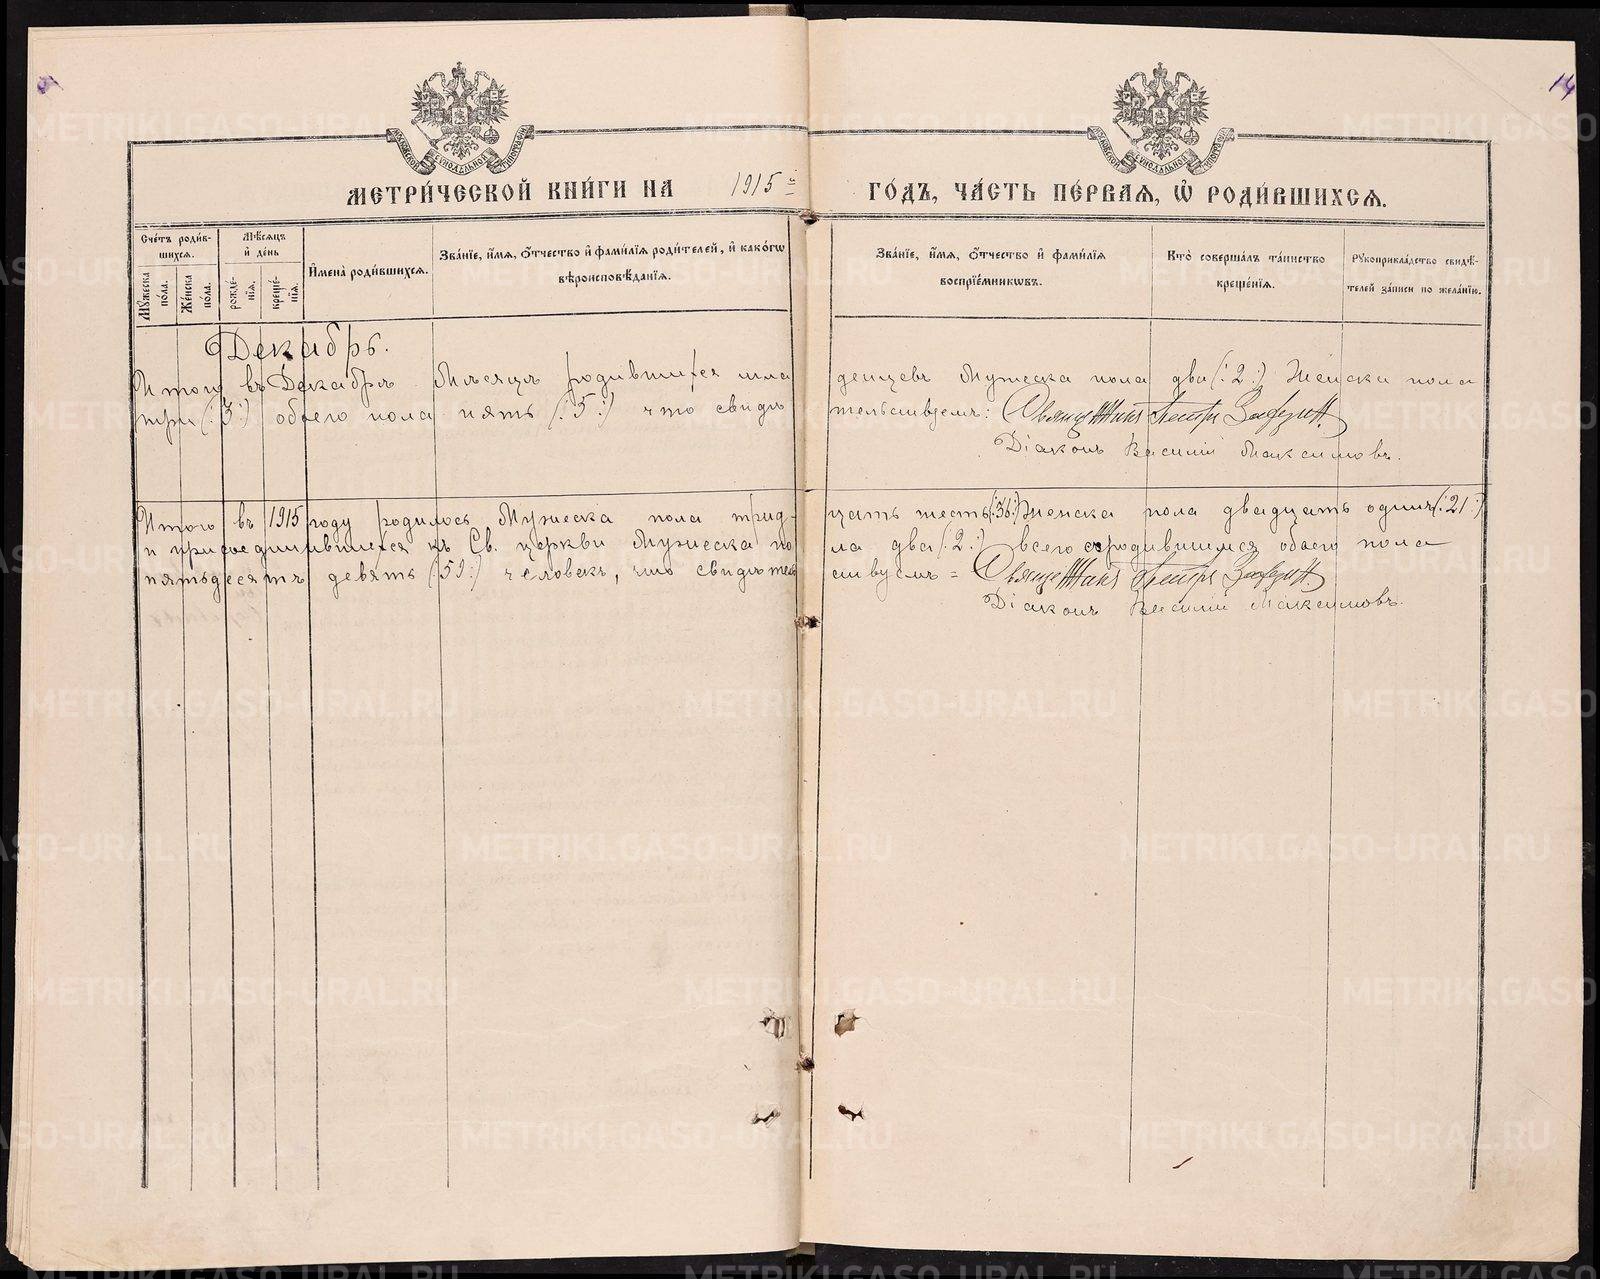 14
МЕТРИ́ЧЕСКОЙ КНИ́ГИ НА 1915 й ГО́ДЪ, ЧА́СТЬ ПЕ́РВАЯ, Ѿ РОДИ́ВШИХСѦ.
Сче́тъ роди́вшихсѧ.
Мꙋ́жеска по́ла.
Же́нска по́ла.
Мѣ́сѧцъ и҆ де́нь
рожде́нїѧ.
креще́нїѧ.
И҆мена̀ роди́вшихсѧ.
Зва́нїе, и҆́мѧ, ѻ҆́тчество и҆ фами́лїѧ роди́телей, и҆ како́гѡ
вѣроисповѣ́данїѧ.
Зва́нїе, и҆́мѧ, ѻ҆́тчество и҆ фами́лїѧ
воспрїе́мникѡвъ.
Кто̀ соверша́лъ та́инство
креще́нїѧ.
Рꙋкоприкла́дство свидѣ́-
телей за́писи по жела́нїю.
Декабрь.
Итого въ Декабрѣ Мѣсяцѣ родившихся мла денцевъ Мужеска пола два (: 2 :) Женска пола
три (: 3 :) обоего пола пять (: 5 :) что свидѣ тельствуемъ: Священникъ Петръ
Дiаконъ Василiй Максимовъ.
Итого въ 1915 году родилось Мужеска пола трид- цать шесть (: 36 :) Женска пола двадцать одинъ (: 21 :)
и присоединившихся къ Св. церкви Мужеска по ла два (: 2 :) всего съ родившимися обоего пола
пятьдесятъ девять (59 :) человекъ, что свидѣтель ствуемъ = Священникъ Петръ
Дiаконъ Василiй Максимовъ.
METRIKI.GASO-URAL.RU